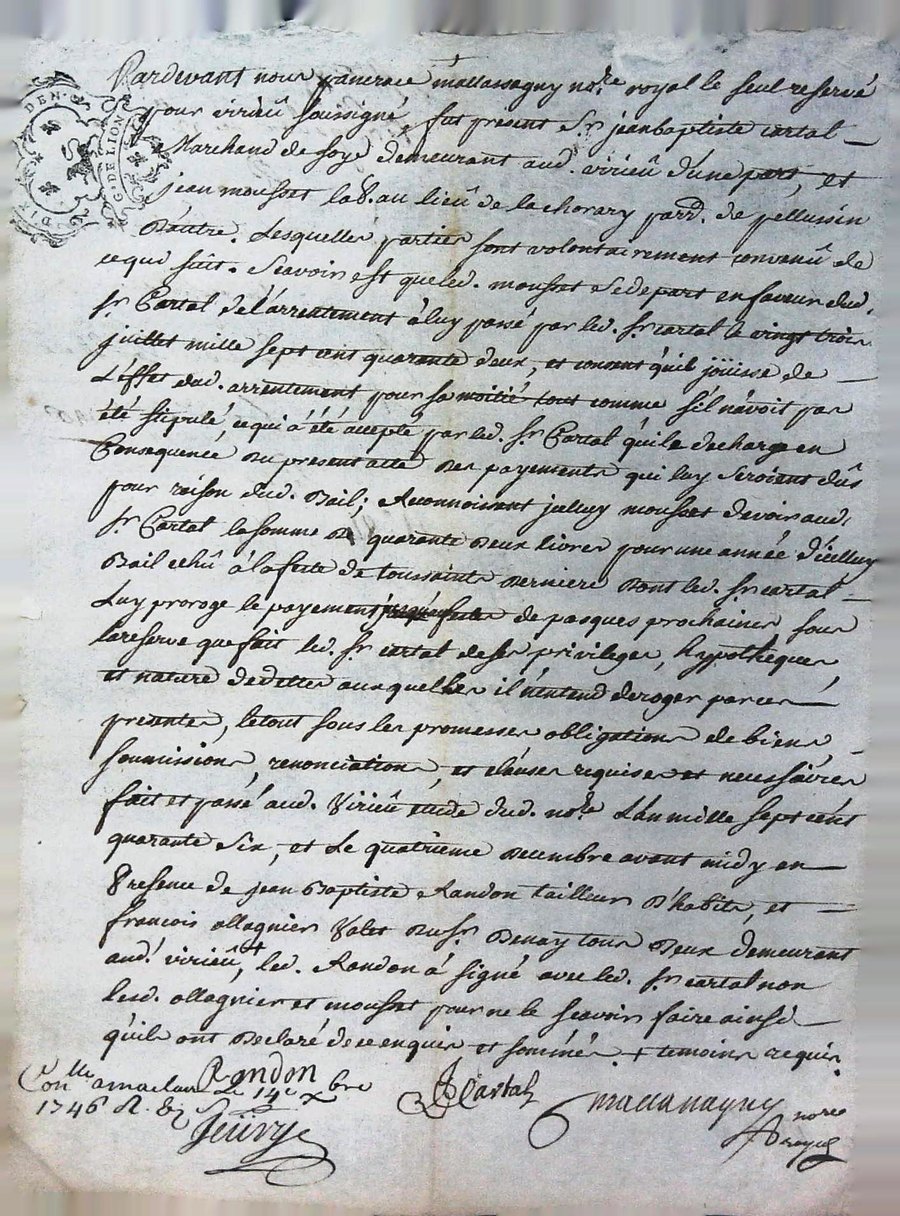 Pardevant nous pancrace mallassagny no.re royal le seul reservé
pour virieû soussigné, fut present Sr. jean baptiste cartal
Marchand de soye demeurant aud. virieû d'une part, et
jean mousset lab. au lieû de la chorary parr. de pellussin
D'autre. Lesquelles parties sont volontairement convenû de
ce qui suit. Scavoir est que led. mousset se depart en faveur dud.
Sr. Cartal de l'arrentement à luy passé par led. Sr. cartal le vingt trois
juillet mille sept cent quarante deux, et consent qu'il joüisse de
L'effet dud. arrentement pour sa moitié tout comme s'il n'avoit pas
été stipulé, ce qui à été accepté par led. Sr. Cartal qui le decharge en
Consequence Du present acte Des payements qui luy seroient dûs
pour raison dud. Bail; Reconnoissant jcelluy mousset devoir aud.
Sr. Cartal la somme De quarante Deux livres pour une année d'icelluy
Bail echû à la feste de toussaints Derniere Dont led. Sr. cartal
Luy proroge le payement de pasques prochaines sous
la reserve que fait led. Sr. cartal de ses privileges, hypotheques
et nature de dettes auxquelles il n'entend deroger par ces
presentes, le tout sous les promesses obligations de biens
soumissions, renonciations, et clauses requises et necessaires
fait et passé aud. Virieû etude dud. no.re L'an mille sept cent
quarante six, et Le quatrieme Decembre avant midy en
Presence de jean Baptiste Randon tailleur D'habits, et
francois ollagnier Valet Du Sr. Denay tous Deux demeurant
aud. virieû, + led. Randon à signé avec led. Sr. cartal non
lesd. ollagnier et mousset pour ne le scavoir faire ainsi
qu'ils ont Declaré de ce enquis et sommés. + temoins requis.
Randon
JB Cartal
mallassagny
nore
royal
Con.lle a maclas le 14e xbre
1746 R.
G. DE LION
DIX DEN.